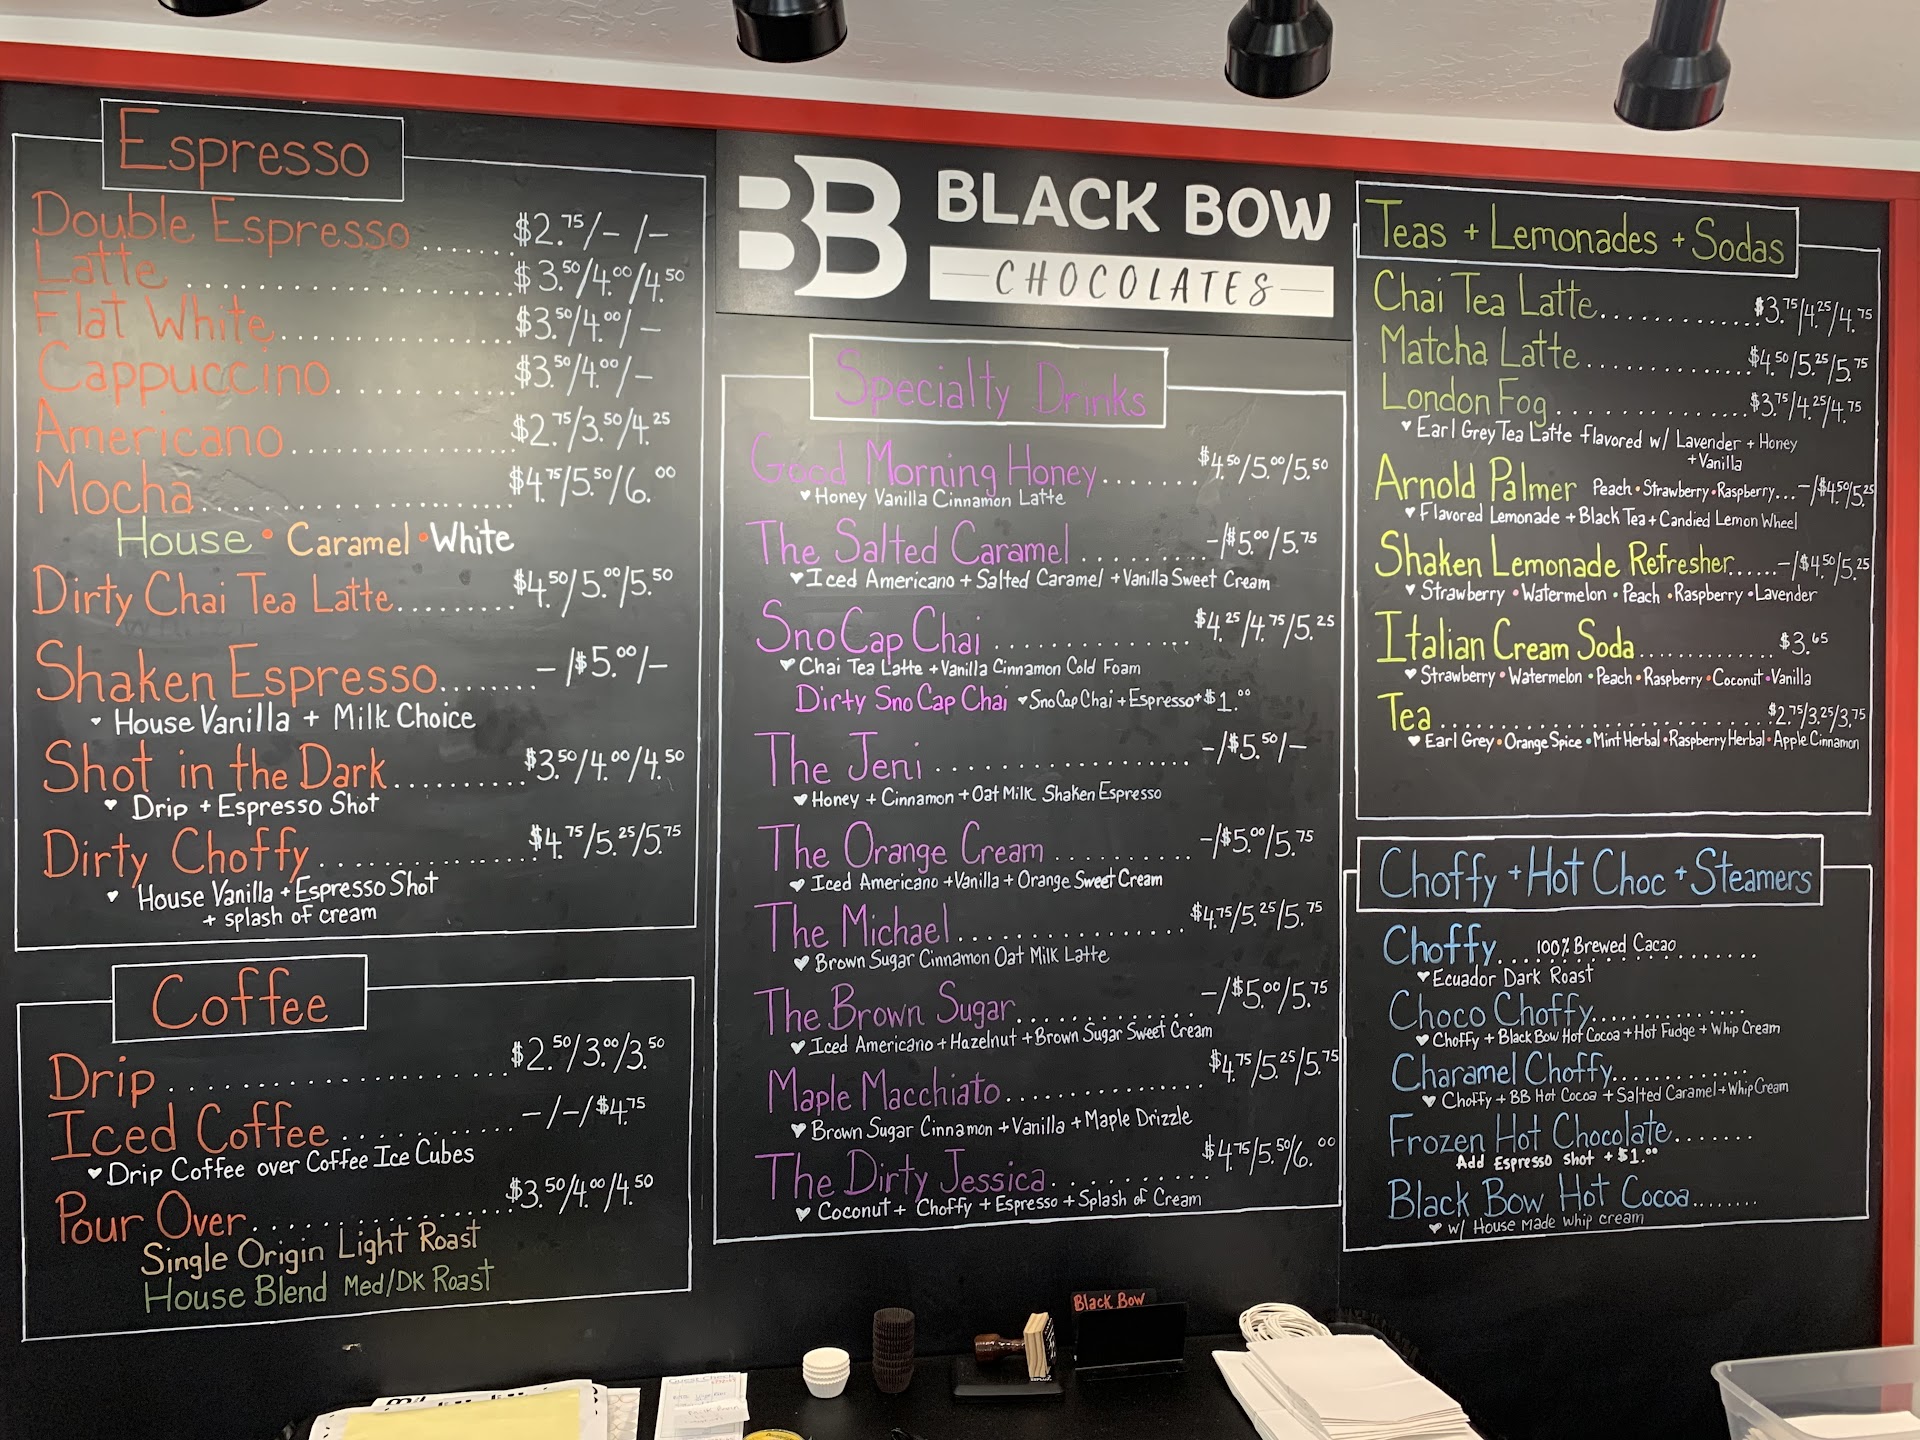 Espresso
Double Espresso ...... $2.75/-/-
Latte .................. $3.50/4.00/4.50
Flat White ............ $3.50/4.00/-
Cappuccino ......... $3.50/4.00/-
Americano ............ $2.75/3.50/4.25
Mocha .................. $4.75/5.50/6.00
House • Caramel • White
Dirty Chai Tea Latte ......... $4.50/5.00/5.50
Shaken Espresso ........ -/$5.00/-
♥ House Vanilla + Milk Choice
Shot in the Dark ......... $3.50/4.00/4.50
♥ Drip + Espresso Shot
Dirty Choffy ............... $4.75/5.25/5.75
♥ House Vanilla + Espresso Shot
+ splash of cream
Coffee
Drip ..................... $2.50/3.00/3.50
Iced Coffee ............ -/-/$4.75
♥ Drip Coffee over Coffee Ice Cubes
Pour Over ............... $3.50/4.00/4.50
Single Origin Light Roast
House Blend Med/DK Roast
BB BLACK BOW
CHOCOLATES
Specialty Drinks
Good Morning Honey ........ $4.50/5.00/5.50
♥ Honey Vanilla Cinnamon Latte
The Salted Caramel .......... -/$5.00/5.75
♥ Iced Americano + Salted Caramel + Vanilla Sweet Cream
SnoCap Chai ............... $4.25/4.75/5.25
♥ Chai Tea Latte + Vanilla Cinnamon Cold Foam
Dirty SnoCap Chai ♥ SnoCap Chai + Espresso + $1.00
The Jeni .................. -/$5.50/-
♥ Honey + Cinnamon + Oat Milk Shaken Espresso
The Orange Cream .......... -/$5.00/5.75
♥ Iced Americano + Vanilla + Orange Sweet Cream
The Michael ............... $4.75/5.25/5.75
♥ Brown Sugar Cinnamon Oat Milk Latte
The Brown Sugar ............ -/$5.00/5.75
♥ Iced Americano + Hazelnut + Brown Sugar Sweet Cream
Maple Macchiato ............ $4.75/5.25/5.75
♥ Brown Sugar Cinnamon + Vanilla + Maple Drizzle
The Dirty Jessica ........... $4.75/5.50/6.00
♥ Coconut + Choffy + Espresso + Splash of Cream
Teas + Lemonades + Sodas
Chai Tea Latte ............ $3.75/4.25/4.75
Matcha Latte ............. $4.50/5.25/5.75
London Fog .............. $3.75/4.25/4.75
♥ Earl Grey Tea Latte flavored w/ Lavender + Honey
+ Vanilla
Arnold Palmer Peach • Strawberry • Raspberry ... -/$4.50/5.25
♥ Flavored Lemonade + Black Tea + Candied Lemon Wheel
Shaken Lemonade Refresher ...... -/$4.50/5.25
♥ Strawberry • Watermelon • Peach • Raspberry • Lavender
Italian Cream Soda ............ $3.65
♥ Strawberry • Watermelon • Peach • Raspberry • Coconut • Vanilla
Tea .............................. $2.75/3.25/3.75
♥ Earl Grey • Orange Spice • Mint Herbal • Raspberry Herbal • Apple Cinnamon
Choffy + Hot Choc + Steamers
Choffy 100% Brewed Cacao
♥ Ecuador Dark Roast
Choco Choffy ..............
♥ Choffy + Black Bow Hot Cocoa + Hot Fudge + Whip Cream
Charamel Choffy ............
♥ Choffy + BB Hot Cocoa + Salted Caramel + Whip Cream
Frozen Hot Chocolate .......
Add Espresso Shot + $1.00
Black Bow Hot Cocoa ........
♥ w/ House Made whip cream
Black Bow